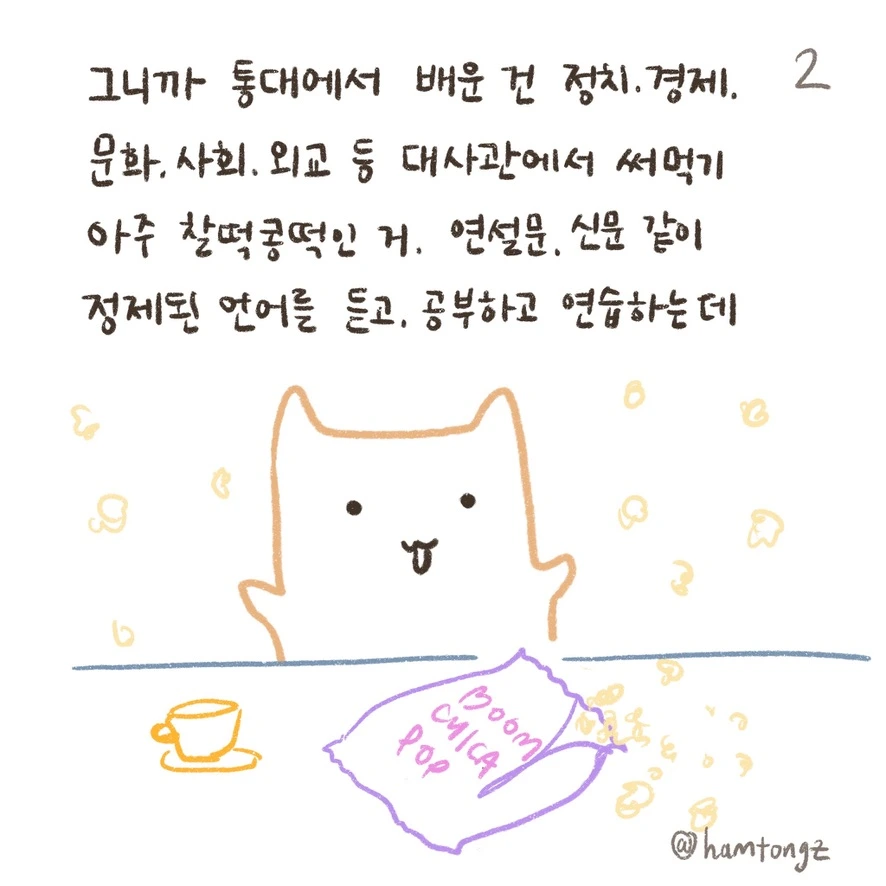 그니까 통대에서 배운 건 정치.경제.
2
문화.사회.외교 등 대사관에서 써먹기
아주 찰떡콩떡인 거. 연설문.신문 같이
정제된 언어를 듣고.공부하고 연습하는데
BOOM
CHICA
POP
@hamtongz